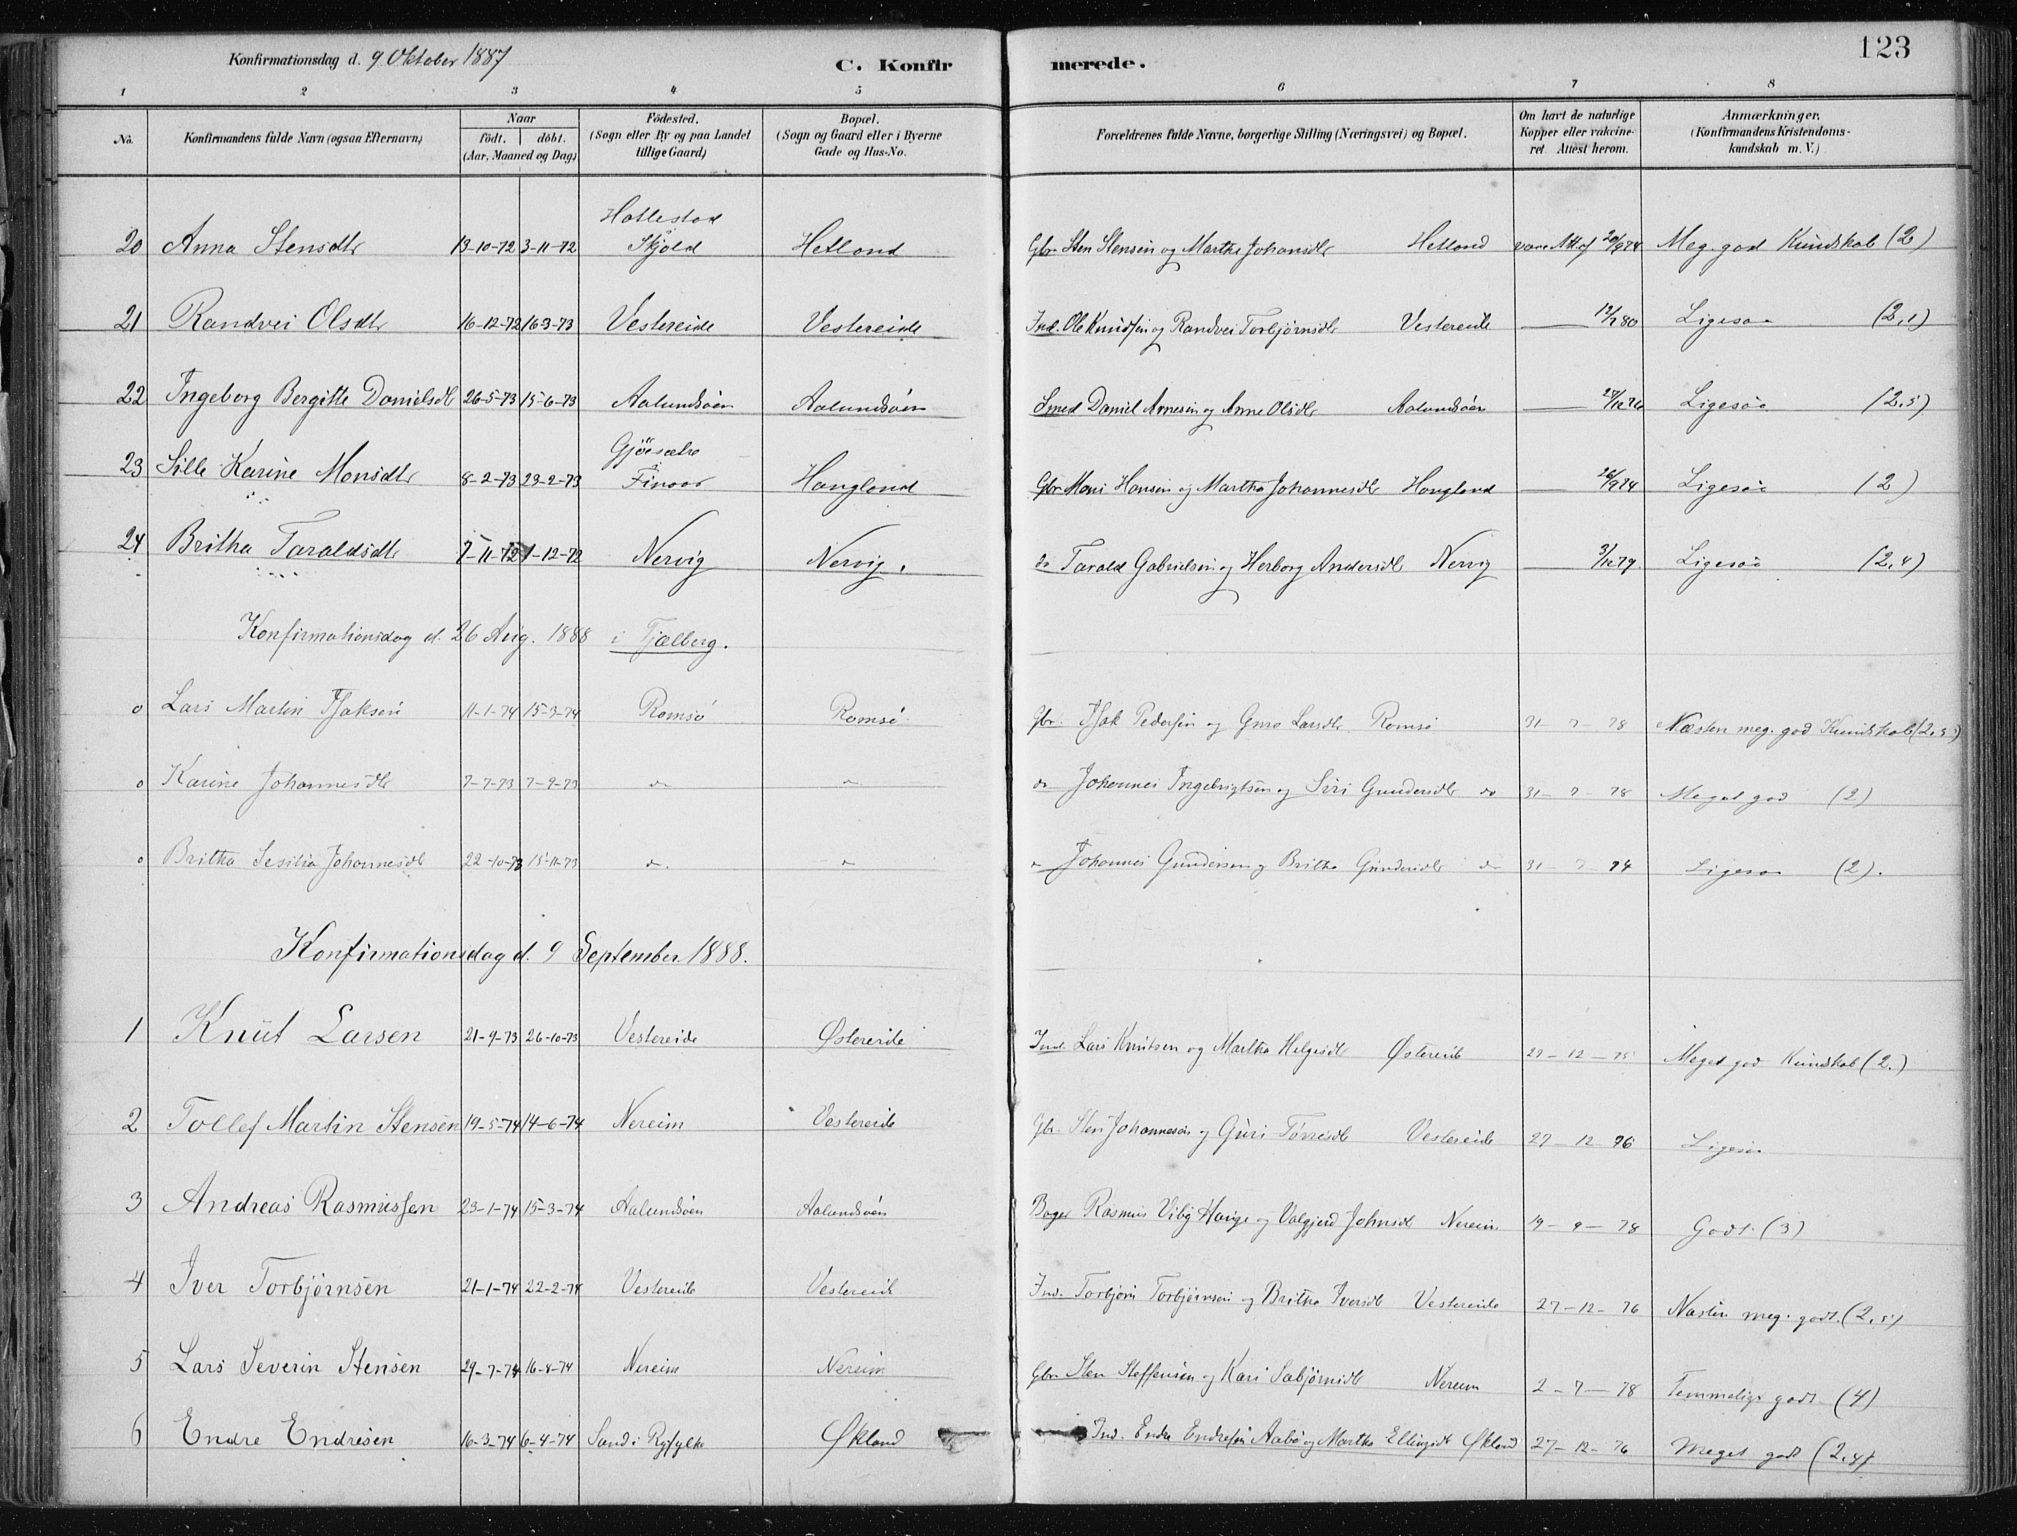 Konfirmationsdag d. 9 Oktober 1887
C. Konfir merede.
123
1 2 3 4 5 6 7 8
No.
Konfirmandens fulde Navn (ogsaa Efternavn)
Naar
födt. döbt.
(Aar, Maaned og Dag)
Födested.
(Sogn eller By og paa Landet
tillige Gaard)
Bopæl.
(Sogn og Gaard eller i Byerne
Gade og Hus-No.
Forældrenes fulde Navne, borgerlige Stilling (Næringsvei) og Bopæl.
Om havt de naturlige
Kopper eller vakcine-
ret Attest herom.
Anmærkninger.
(Konfirmandens Kristendoms-
kundskab m. V.)
20 Anna Stensdtr 13-10-72 3-11-72 Skjold Hetland Gbr. Sten Stensen og Martha Johansdtr Hetland Meg. god Kundskab (2)
21 Randvei Olsdtr 16-12-72 16-3-73 Vestereide Vestereide Ind. Ole Knudsen og Randvei Torbjørnsdtr Vestereide Ligesaa (2,1)
22 Ingeborg Bergitte Danielsdtr 26-5-73 15-6-73 Aalundsöen Aalundsöen Smed Daniel Arnesen og Anne Olsdtr Aalundsöen Ligesaa (2,5)
23 Sille Karine Monsdtr 8-2-73 23-2-73 Haugland Gbr. Mons Hansen og Martha Johannesdtr Haugland Ligesaa (2)
24 Britha Taraldsdtr 7-11-72 1-12-72 Nervig Nervig. do Tarald Gabrielsen og Herborg Andersdtr Nervig Ligesaa (2,4)
Konfirmationsdag d. 26 Aug. 1888 i Fjælberg.
o Lars Martin Isaksen 11-1-74 15-3-74 Romsö Romsö Gbr. Isak Pedersen og Guro Larsdtr. Romsö 31-7-78 Næsten meg. god Kundskab (2,5)
o Karine Johannesdtr 7-7-73 7-9-73 do do do Johannes Ingebrigtsen og Siri Gundersdtr do 31-7-78 Meget god (2)
o Britha Sesilia Johannesdtr 22-10-73 15-11-73 do do do Johannes Gundersen og Britha Gundersdtr do 31-7-74 Ligesaa (2).
Konfirmationsdag d. 9 September 1888.
1 Knut Larsen 21-9-73 26-10-73 Vestereide Østereide Ind. Lars Knutsen og Martha Helgesdtr Østereide 27-12-75 Meget god Kundskab (2.)
2 Tollef Martin Stensen 19-5-74 14-6-74 Nereim Vestereide Gbr. Sten Johannesen og Guri Tørresdtr Vestereide 27-12-76 Ligesaa
3 Andreas Rasmussen 23-1-74 15-3-74 Aalundsöen Aalundsöen Bager Rasmus Vibg Hauge og Valgjerd Johnsdtr Nereim 19-9-78 Godt. (3)
4 Iver Torbjørnsen 21-1-74 22-2-74 Vestereide Vestereide Ind. Torbjørn Torbjørnsen og Britha Iversdtr Vestereide 27-12-76 Næsten meg. godt. (2,5)
5 Lars Severin Stensen 29-7-74 16-8-74 Nereim Nereim Gbr. Sten Steffensen og Kari Sæbjørnsdtr Nereim 2-7-78 Temmelig godt (4)
6 Endre Endresen 16-3-74 6-4-74 Sand i Ryfylke Økland Ind. Endre Endresen Aabø og Martha Ellingsdtr Økland 27-12-76 Meget godt (2,4)